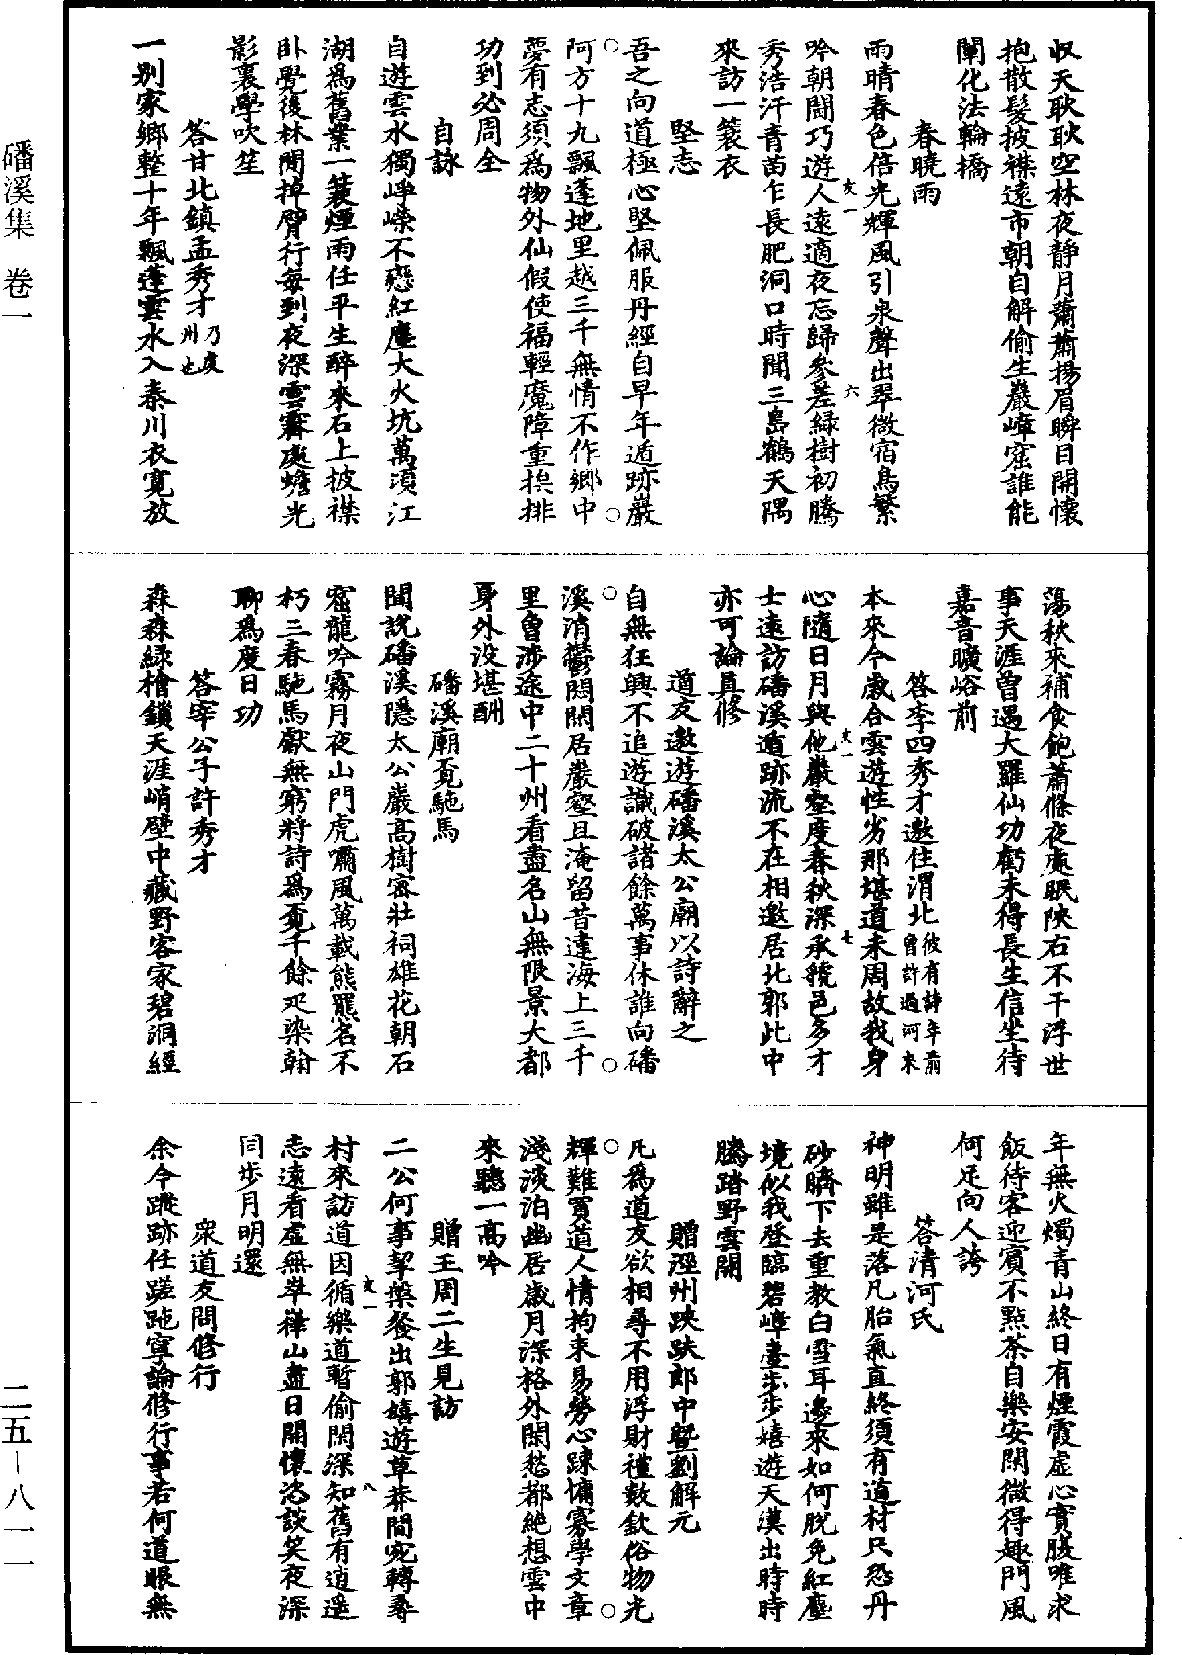 磻溪集　卷一
收天耿耿空林夜靜月蕭蕭揚眉瞬目開懷
抱散髮披襟遠市朝自解偷生巖嶂窟誰能
闡化法輪橋
春曉雨
雨晴春色倍光輝風引泉聲出翠微宿鳥繁
吟朝鬪巧遊人遠適夜忘歸參差綠樹初騰
友一
六
秀浩汗青苗乍長肥洞口時聞三島鶴天隅
來訪一蓑衣
堅志
吾之向道極心堅佩服丹經自早年遁跡巖
阿方十九飄蓬地里越三千無情不作鄉中
夢有志須為物外仙假使福輕魔障重挨排
功到必周全
自詠
自遊雲水獨崢嶸不戀紅塵大火坑萬頃江
湖爲舊業一蓑煙雨任平生醉來石上披襟
卧覺後林間掉臂行每到夜深雲霽處蟾光
影裏學吹笙
答甘北鎮孟秀才乃虔州也
一別家鄉整十年飄蓬雲水入秦川衣寬放
蕩秋來補食飽蕭條夜處眠陝右不干浮世
事天涯曾遇大羅仙功虧未得長生信坐待
嘉音曠峪前
答李四秀才邀住渭北彼有詩年前曾許過河來
本來今歲合雲遊性劣那堪道未周故我身
心隨日月與他巖壑度春秋深承虢邑多才
友一
七
士遠訪磻溪遁跡流不在相邀居北郭此中
亦可論真修
道友邀遊磻溪太公廟以詩辭之
自無狂興不追遊識破諸餘萬事休誰向磻
溪消鬱悶閑居巖壑且淹留昔違海上三千
里曾涉途中二十州看盡名山無限景大都
身外没堪酬
磻溪廟覓馳馬
聞説磻溪隱太公巖高樹密壯祠雄花朝石
窟龍吟霧月夜山門虎嘯風萬載熊羆名不
朽三春馳馬獻無窮將詩爲覓千餘咫染翰
聊爲度日功
答宰公子許秀才
森森綠檜鎖天涯峭壁中藏野客家碧洞經
年無火燭青山終日有煙霞虛心實腹唯求
飯待客迎賓不點茶自樂安閑微得趣門風
何足向人誇
答清河氏
神明雖是落凡胎氣直終須有道材只恐丹
砂臍下去重教白雪耳邊來如何脱免紅塵
境似我登臨碧嶂臺步步嬉遊天漠出時時
騰踏野雲開
贈涇州趺趺郎中暨劉解元
凡爲道友欲相尋不用浮財禮數欽俗物光
輝難買道人情拘束易勞心踈慵寡學文章
淺淡泊幽居歲月深格外閑愁都絕想雲中
來聽一高吟
贈王周二生見訪
二公何事挈藥發出郭嬉遊草莽間宛轉尋
村來訪道因循樂道暫偷閑深知舊有逍遥
友一
八
志遠看虛無華山盡日開懷恣談笑夜深
同步月明還
衆道友問修行
余今蹤跡任蹉跎寧論修行事若何道眼無
二五—八一一